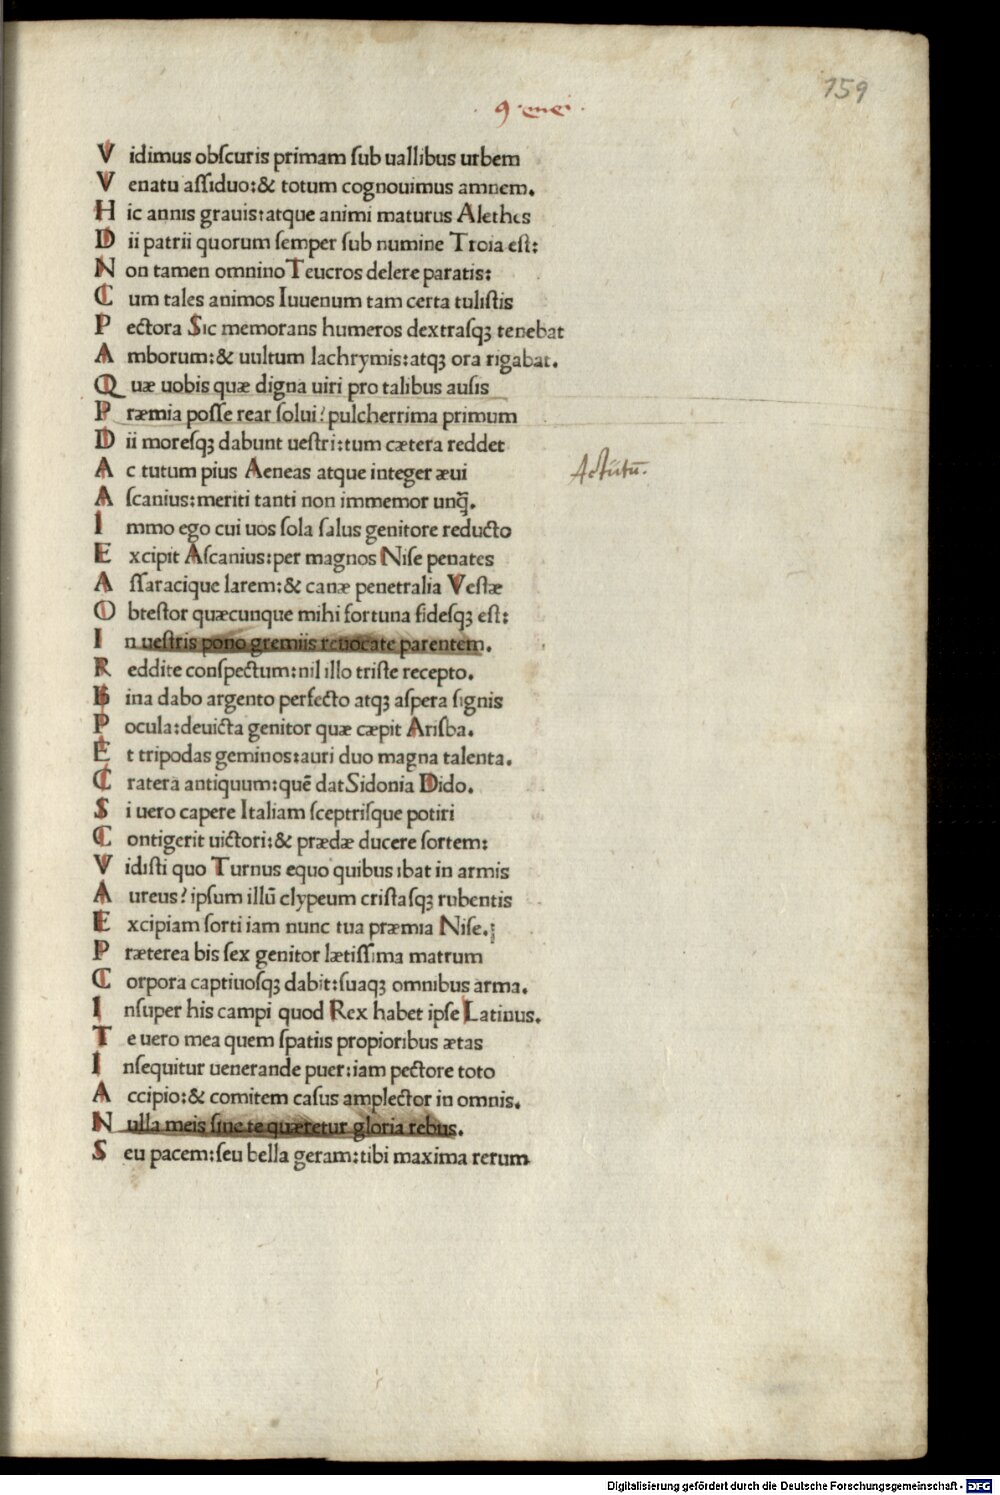 159
· 9 · enei ·
V idimus obſcuris primam ſub uallibus urbem
V enatu aſſiduo:& totum cognouimus amnem.
H ic annis grauis:atque animi maturus Alethes
D ii patrii quorum ſemper ſub numine Troia eſt:
N on tamen omnino Teucros delere paratis:
C um tales animos Iuuenum tam certa tuliſtis
P ectora Sic memorans humeros dextraſqꝫ tenebat
A mborum:& uultum lachrymis:atqꝫ ora rigabat.
Q uæ uobis quæ digna uiri pro talibus auſis
P ræmia poſſe rear ſolui? pulcherrima primum
D ii moreſqꝫ dabunt ueſtri:tum cætera reddet
A c tutum pius Aeneas atque integer æui
Actutū.
A ſcanius:meriti tanti non immemor unq̃.
I mmo ego cui uos ſola ſalus genitore reducto
E xcipit Aſcanius:per magnos Niſe penates
A ſſaracique larem:& canæ penetralia Veſtæ
O bteſtor quæcunque mihi fortuna fideſqꝫ eſt:
I n ueſtris pono gremiis reuocate parentem.
R eddite conſpectum:nil illo triſte recepto.
B ina dabo argento perfecto atqꝫ aſpera ſignis
P ocula:deuicta genitor quæ cæpit Ariſba.
E t tripodas geminos:auri duo magna talenta.
C ratera antiquum:quē dat Sidonia Dido.
S i uero capere Italiam ſceptriſque potiri
C ontigerit uictori:& prædæ ducere ſortem:
V idiſti quo Turnus equo quibus ibat in armis
A ureus? ipſum illū clypeum criſtaſqꝫ rubentis
E xcipiam ſorti iam nunc tua præmia Niſe.
P ræterea bis ſex genitor lætiſſima matrum
C orpora captiuoſqꝫ dabit:ſuaqꝫ omnibus arma.
I nſuper his campi quod Rex habet ipſe Latinus.
T e uero mea quem ſpatiis propioribus ætas
I nſequitur uenerande puer:iam pectore toto
A ccipio:& comitem caſus amplector in omnis.
N ulla meis ſine te quæretur gloria rebus.
S eu pacem:ſeu bella geram:tibi maxima rerum
Digitalisierung gefördert durch die Deutsche Forschungsgemeinschaft - DFG